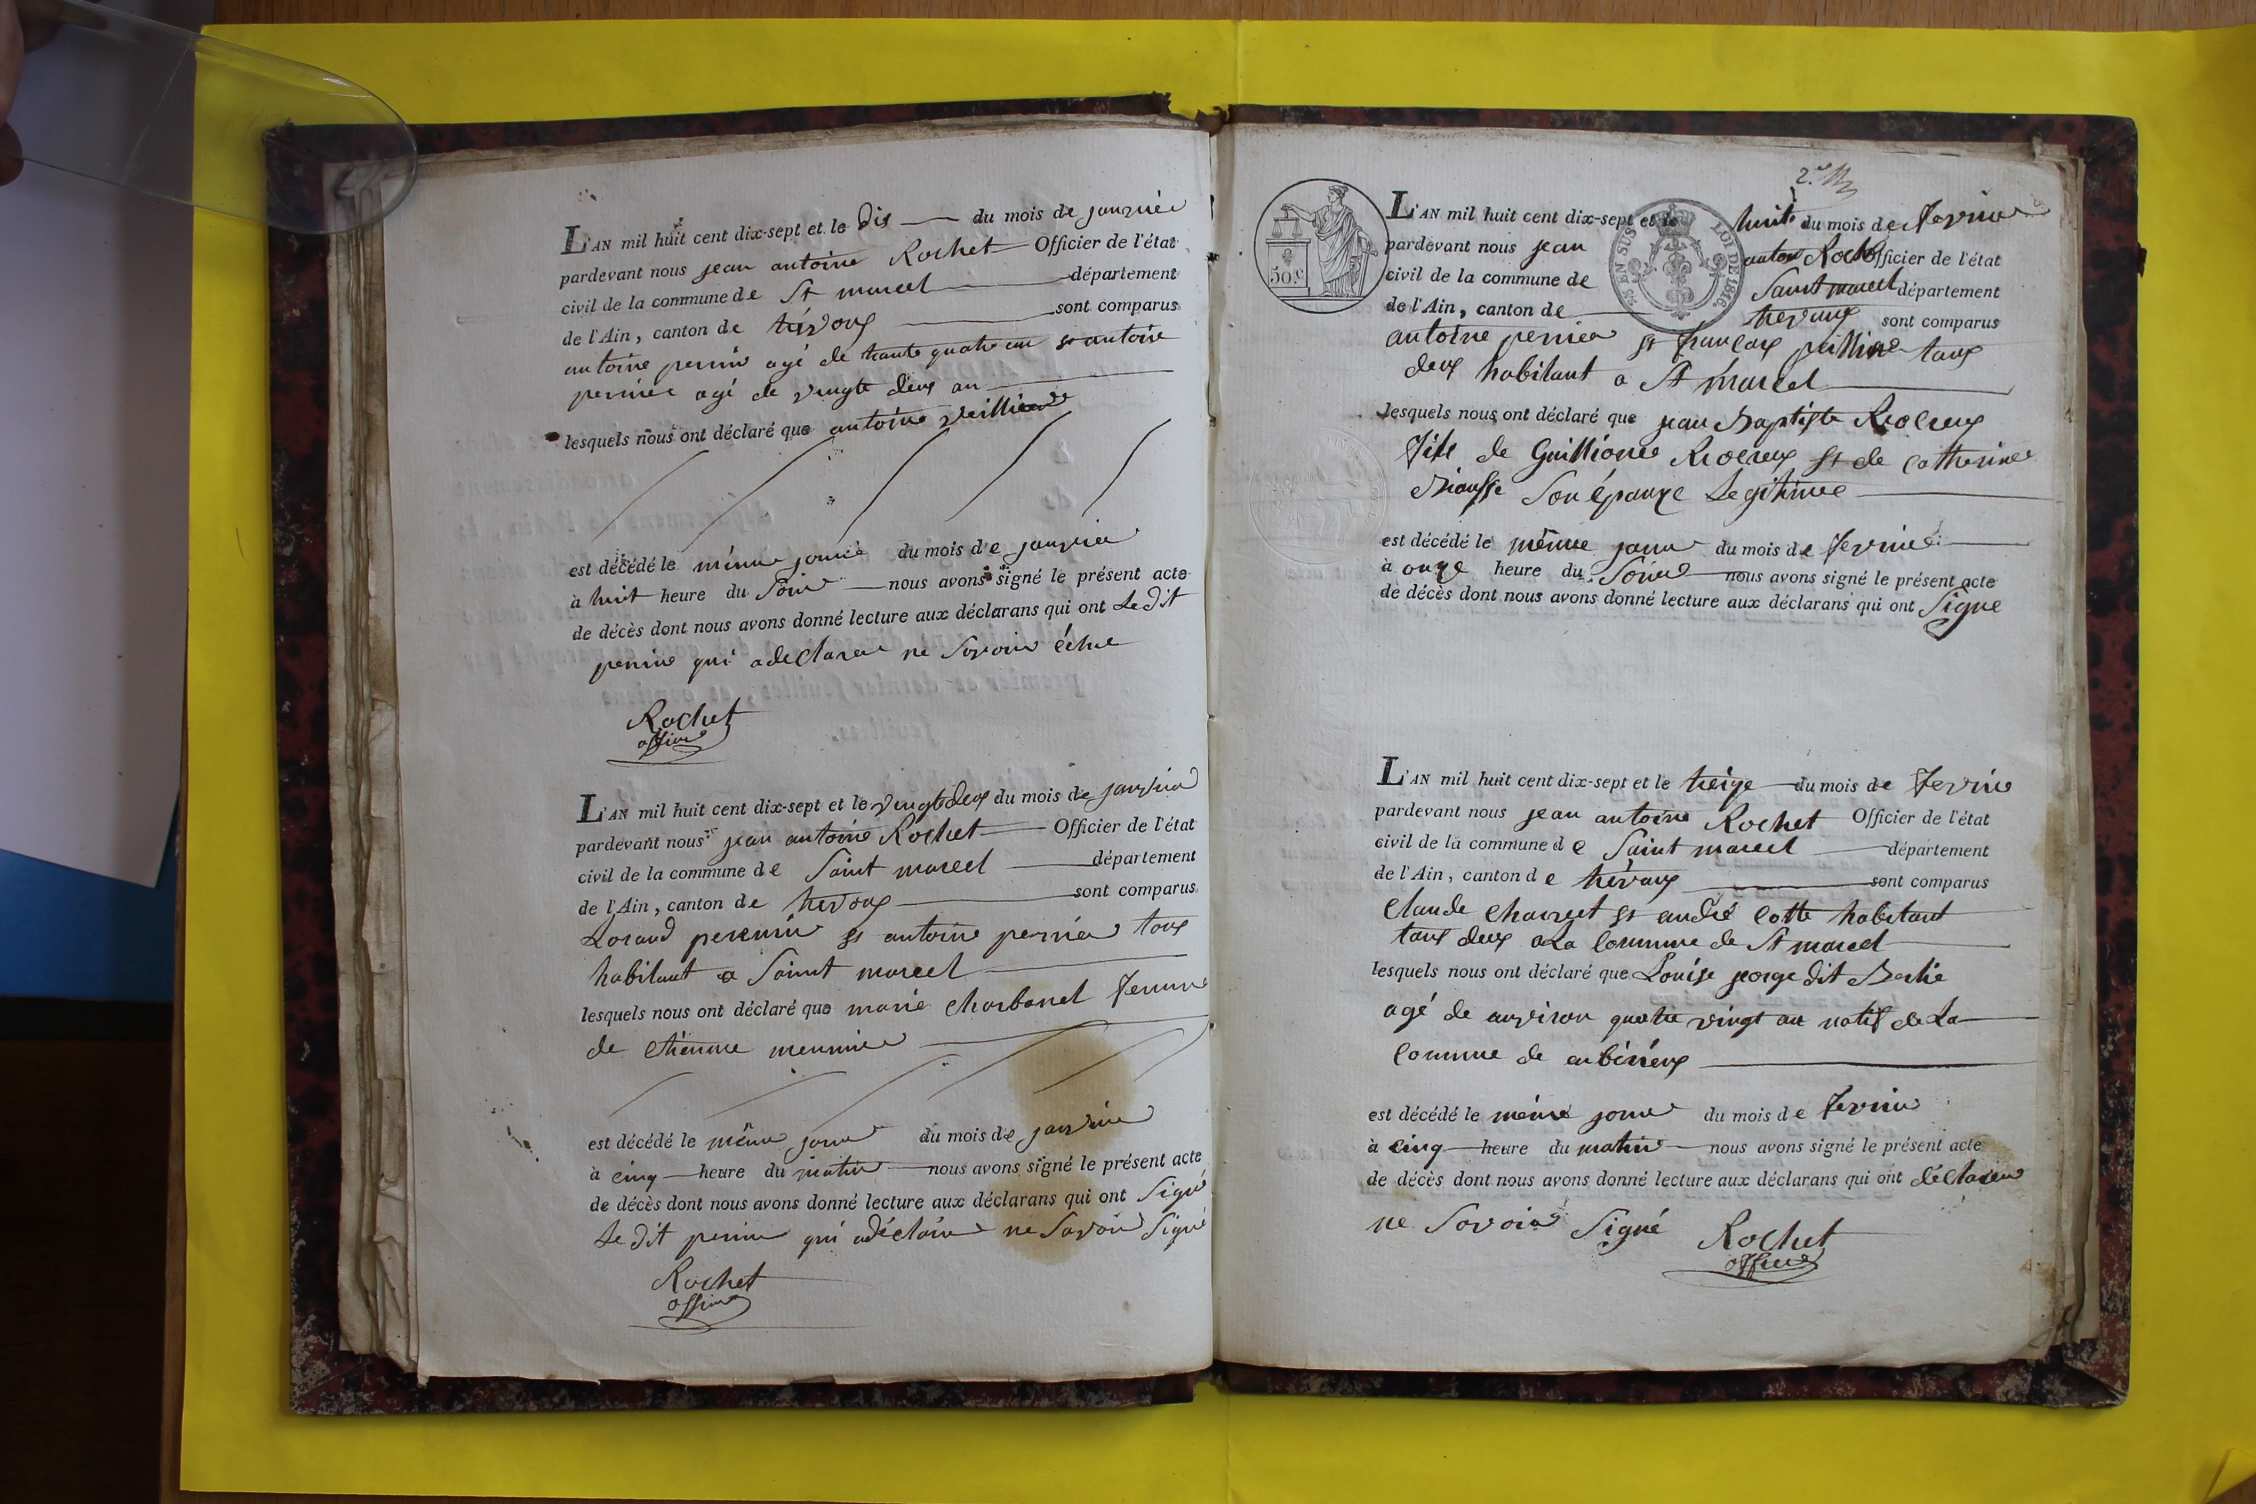 L'AN mil huit cent dix-sept et le dix du mois de janvier
pardevant nous jean antoine Rochet Officier de l'état
civil de la commune de St marcel département
de l'Ain, canton de trévoux sont comparus
antoine perrin agé de trante quatre an et antoine
perrier agé de vingte deux an
lesquels nous ont déclaré que antoine
est décédé le même jour du mois de janvier
à huit heure du Soir nous avons signé le présent acte
de décès dont nous avons donné lecture aux déclarans qui ont Le dit
perrin qui a declare ne Savoir
Rochet
officier
L'AN mil huit cent dix-sept et le vingtdeux du mois de janvier
pardevant nous jean antoine Rochet Officier de l'état
civil de la commune de Saint marcel département
de l'Ain, canton de trevoux sont comparus
perrin et antoine perrier tous
habitant a Saint marcel
lesquels nous ont déclaré que marie charbonel femme
de etienne meunier
est décédé le même jour du mois de janvier
à cinq heure du matin nous avons signé le présent acte
de décès dont nous avons donné lecture aux déclarans qui ont Signé
Le dit perrin qui a déclare ne Savoir Signé
Rochet
officier
2.e
50 c.
EN SUS LOI DE 1816
L'AN mil huit cent dix-sept et le huit du mois de fevrier
pardevant nous jean antoine Rochet Officier de l'état
civil de la commune de Saint marcel département
de l'Ain, canton de trevoux sont comparus
antoine perrier et françois tous
deux habitant a St marcel
lesquels nous ont déclaré que jean Baptiste
fils de et de catherine
Son épouze Legitime
est décédé le même jour du mois de fevrier
à onze heure du Soir nous avons signé le présent acte
de décès dont nous avons donné lecture aux déclarans qui ont Signe
L'AN mil huit cent dix-sept et le treize du mois de fevrier
pardevant nous jean antoine Rochet Officier de l'état
civil de la commune de Saint marcel département
de l'Ain, canton de trévoux sont comparus
Claude et andré cotte habitant
tous deux a La Commune de St marcel
lesquels nous ont déclaré que Louise george dit
agé de anviron quatre vingt an natif de La
Commune de
est décédé le même jour du mois de fevrier
à cinq heure du matin nous avons signé le présent acte
de décès dont nous avons donné lecture aux déclarans qui ont déclarer
ne Savoir Signé
Rochet
officier